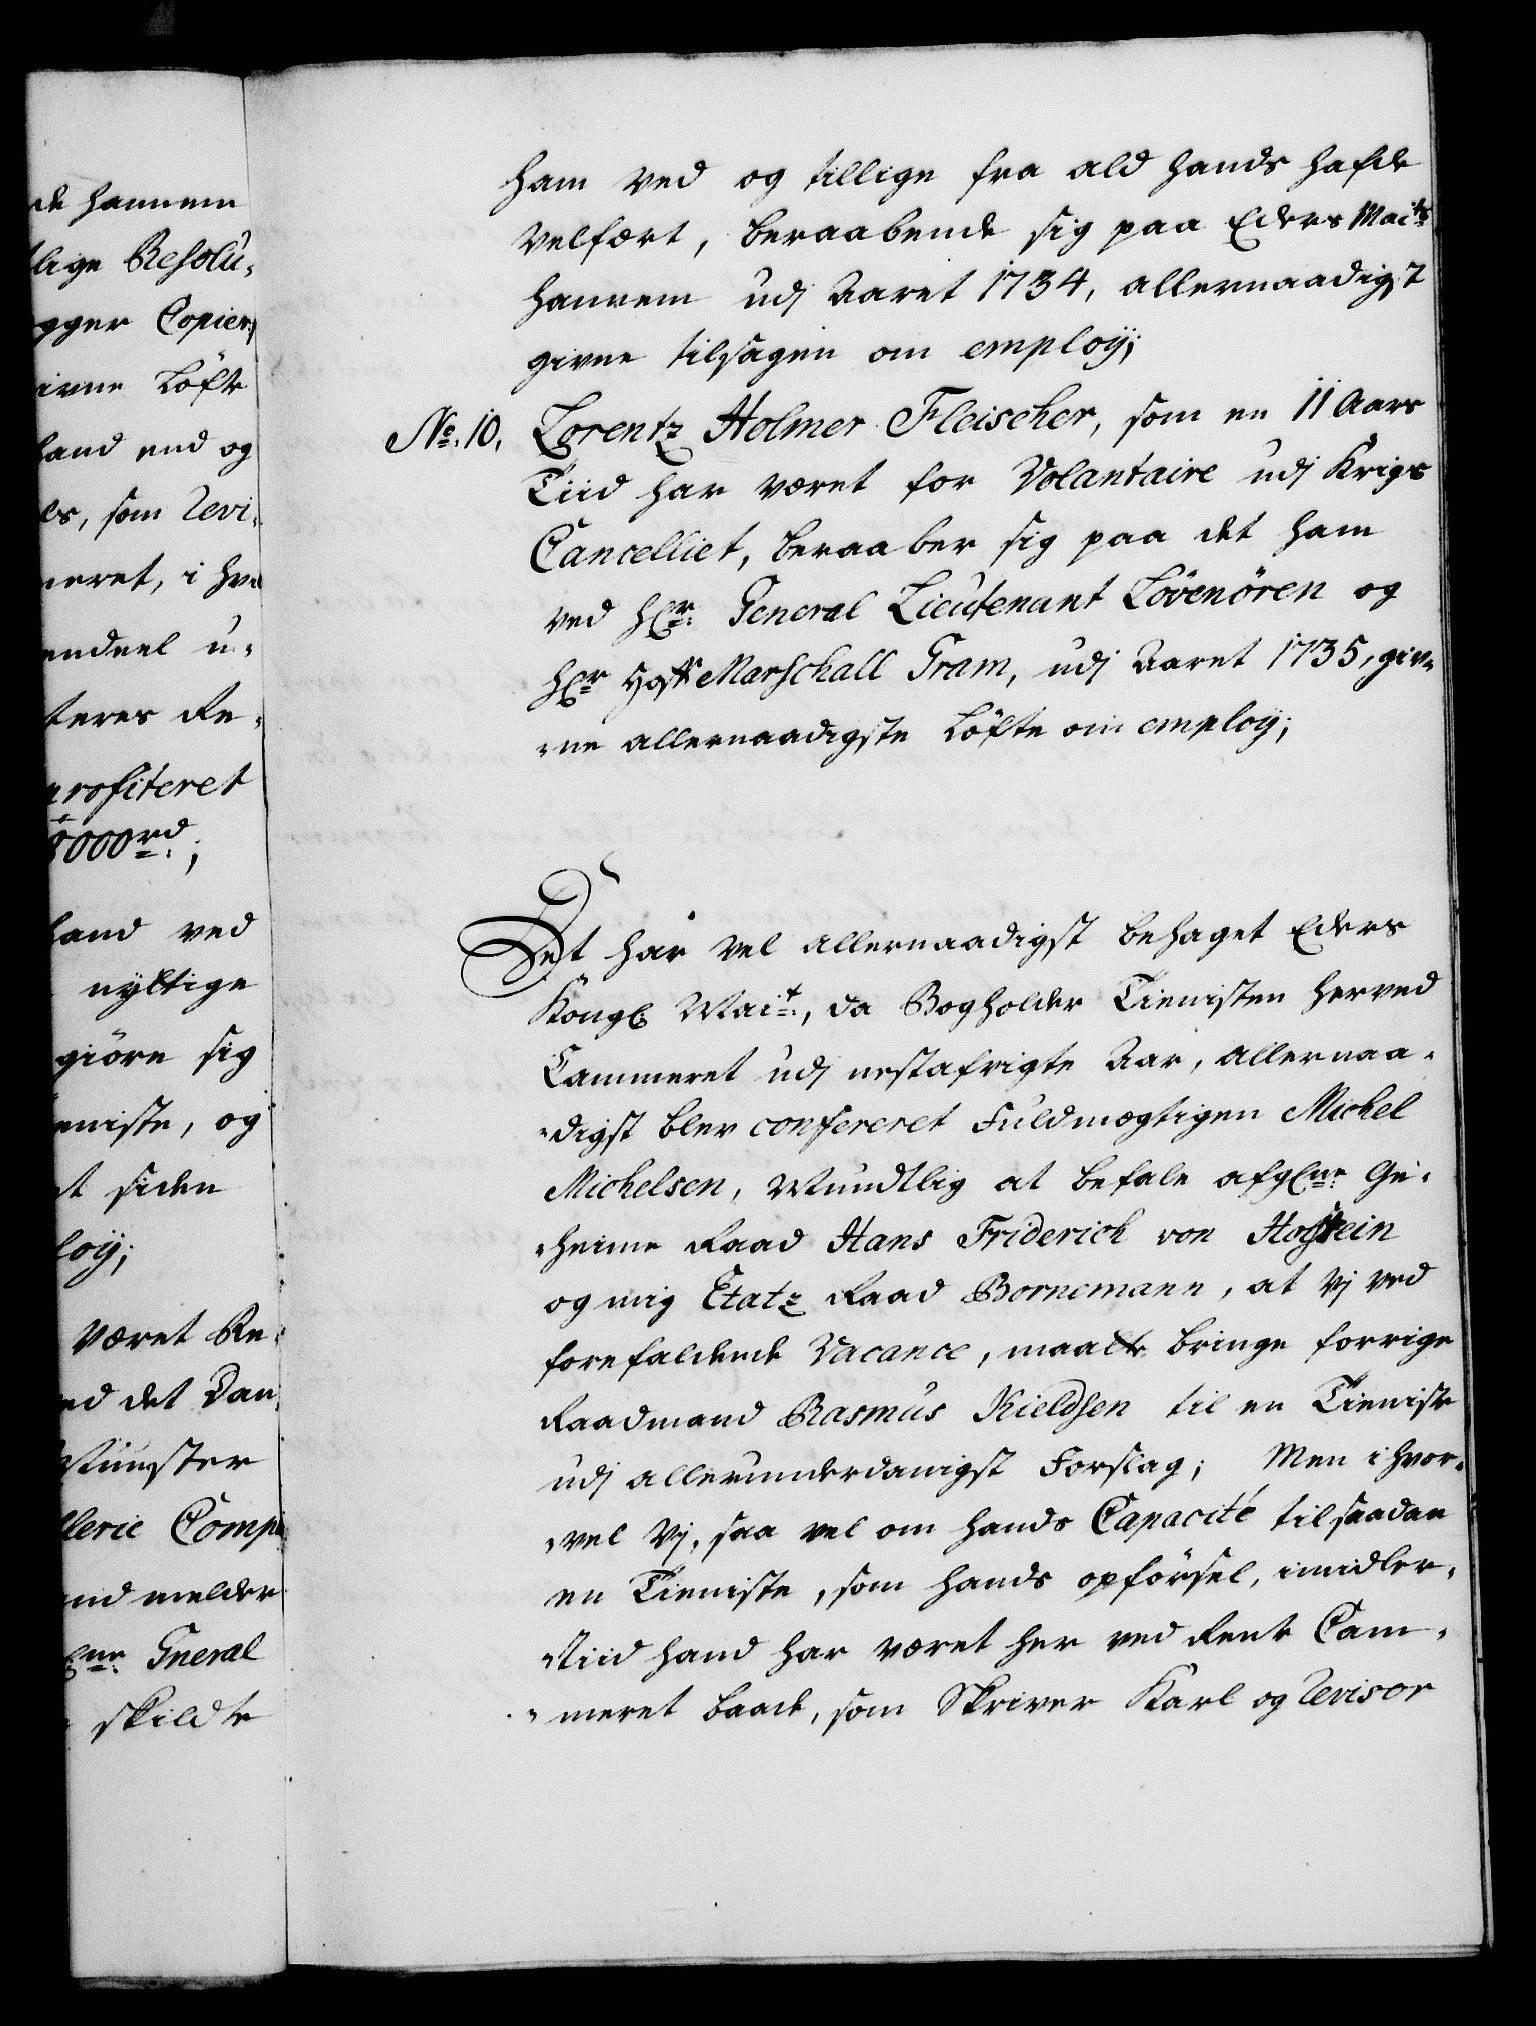 de hannem
lige Resolu-
gger Copier,
ivne Löfte
hand end og
es, som Revi-
neret, i hvo
endeel u-
teres Re-
profiteret
8000rd;
hand ved
nyttige
giöre sig
eniste, og
et siden
loÿ;
været Re-
ed det Dan
Münster
llerie Comp
end melder
General
skildte
ham ved og tillige fra ald hands hafde
Velfært, beraabende sig paa Eders Maits
hannem udj Aaret 1734, allernaadigst
givne tilsagen om employ;
No. 10. Lorentz Holmer Fleischer, som en 11 Aars
Tiid har været for Volantaire udj Krigs
Cancelliet, beraaber sig paa det ham
ved Hr. General Lieutenant Lövenören og
Hr Hoff Marschall Gram, udj Aaret 1735, giv-
-ne allernaadigste Löfte om employ;
Det har vel allernaadigst behaget Eders
Kongl Mait., da Bogholder Tienisten herved
Cammeret udj nestafvigte Aar, allernaa-
-digst blev confereret Fuldmægtigen Michel
Michelsen, Mundtlig at befale afgne. Ge-
-heime Raad Hans Friderich von Holstein
og mig Etatz Raad Bornemann, at vj ved
forefaldende Vacance, maatte bringe forrige
Raadmand Rasmus Kieldsen til en Tieniste
udj allerunderdanigst Forslag; Men ihvor-
-vel Vj, saa vel om hands Capacité til saadan
en Tieniste, som hands opförsel, imidler-
-tiid hand har været her ved Rente Cam-
-meret baade, som Skriver Karl og Revisor